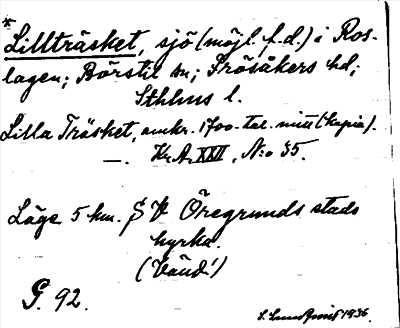 *
Lillträsket, sjö (möjl. f.d.) i Ros-
lagen; Börstil sn; Frösåkers hd;
Sthlms l.
Lilla Träsket, omkr. 1700-tal. mitt (kopia).
—. Kr.A. XXII, N:o 35.
Läge 5 km. SV Öregrunds stads
kyrka.
(Vänd!)
G. 92.
S. Lundqvist 1936.